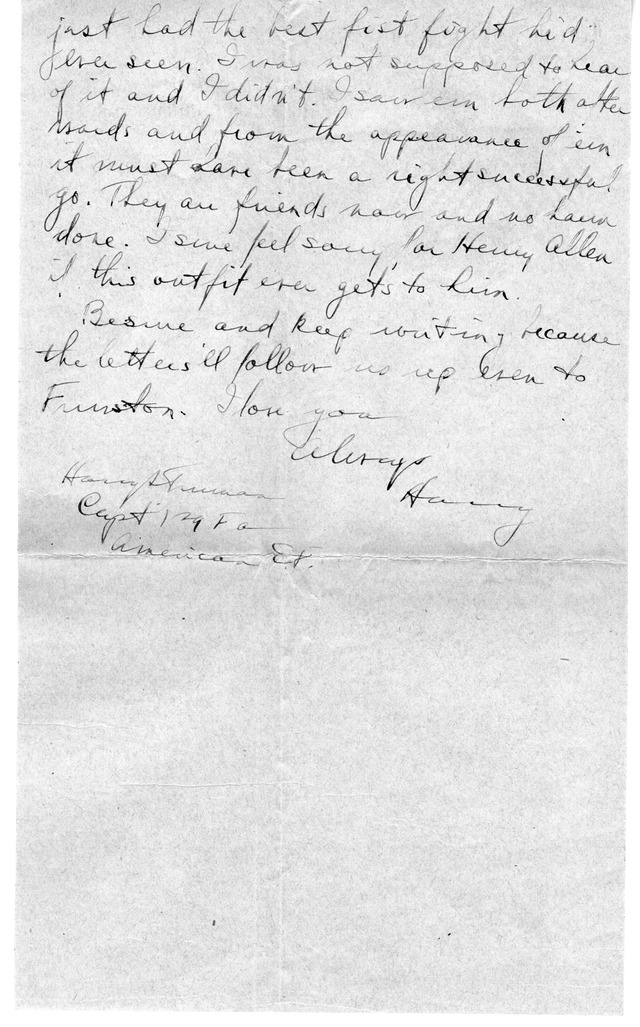 just had the best fist fight he'd
ever seen. I was not supposed to hear
of it and I didn't. I saw em both after
wards and from the appearance of em
it must have been a right successful
go. They are friends now and no harm
done. I sure feel sorry for Henry Allen
if this outfit ever gets to him.
Besure and keep writing because
the letters'll follow us up even to
Funston. I love you
Always
Harry
Harry S Truman
Capt 129 Fa
American E.F.